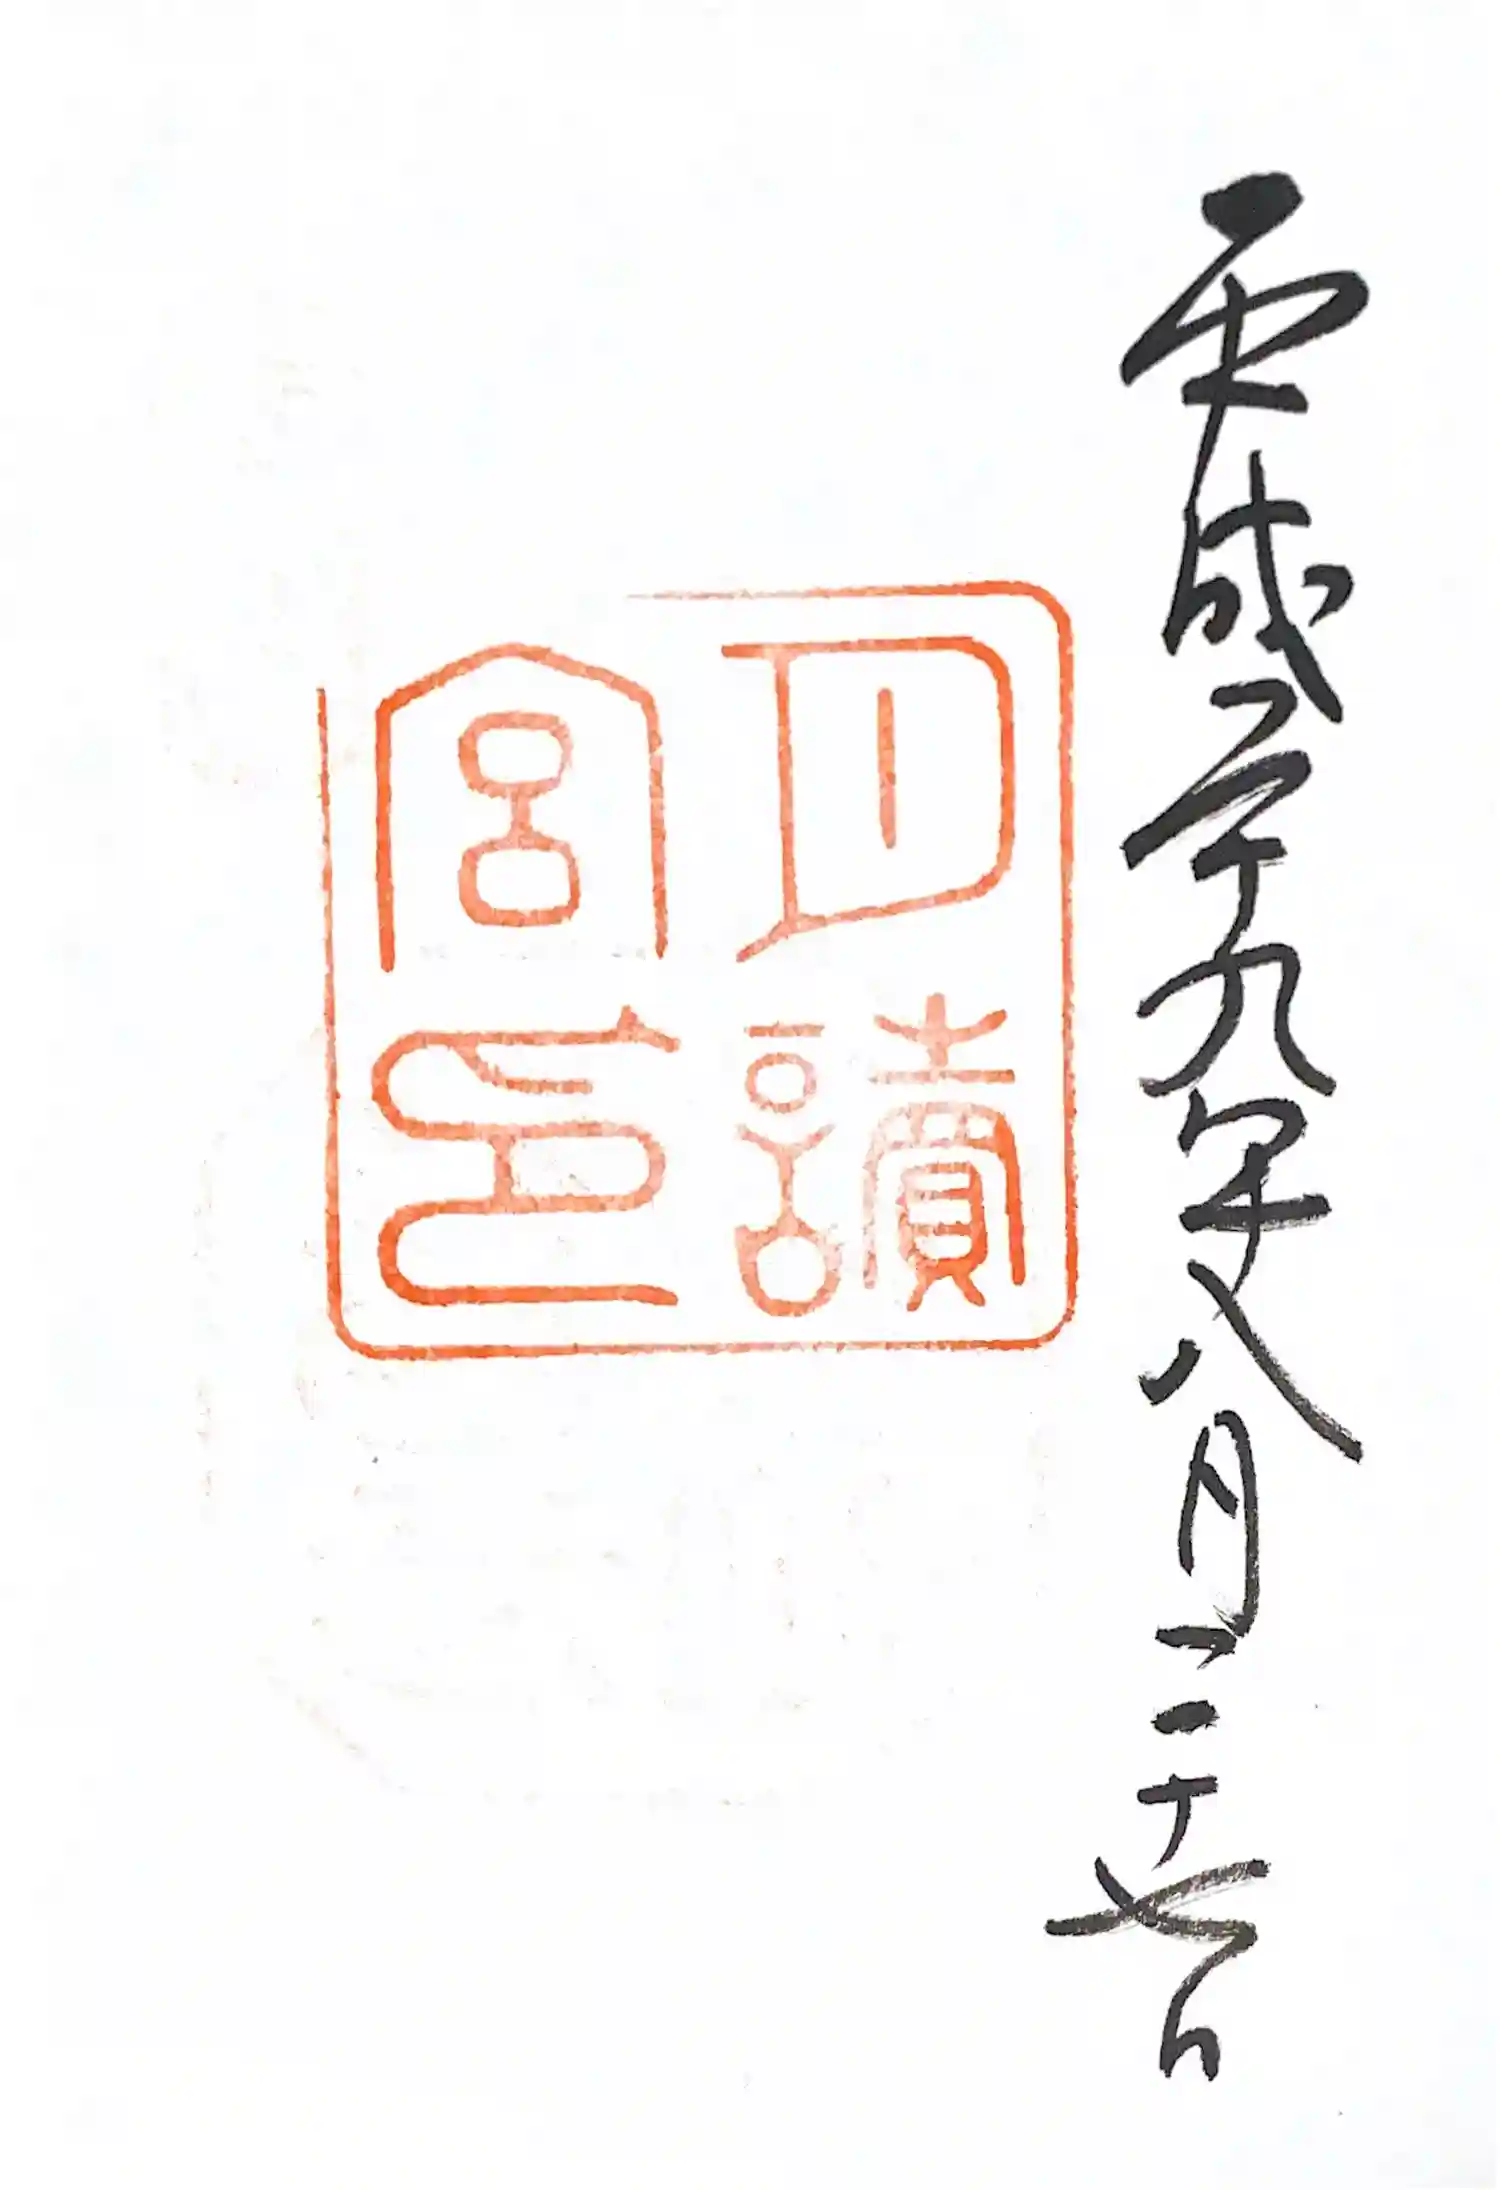 平成二十九年八月二十七日
月讀
宮印